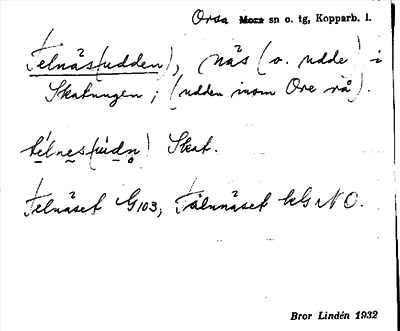 Orsa Mora sn o. tg, Kopparb. l.
Telnäs(udden), näs (o. udde) i
Skattungen; (udden inom Ore rå).
télnes(údn) Skat.
Telnäset G103, Tälnnäset kG NO.
Bror Lindén 1932